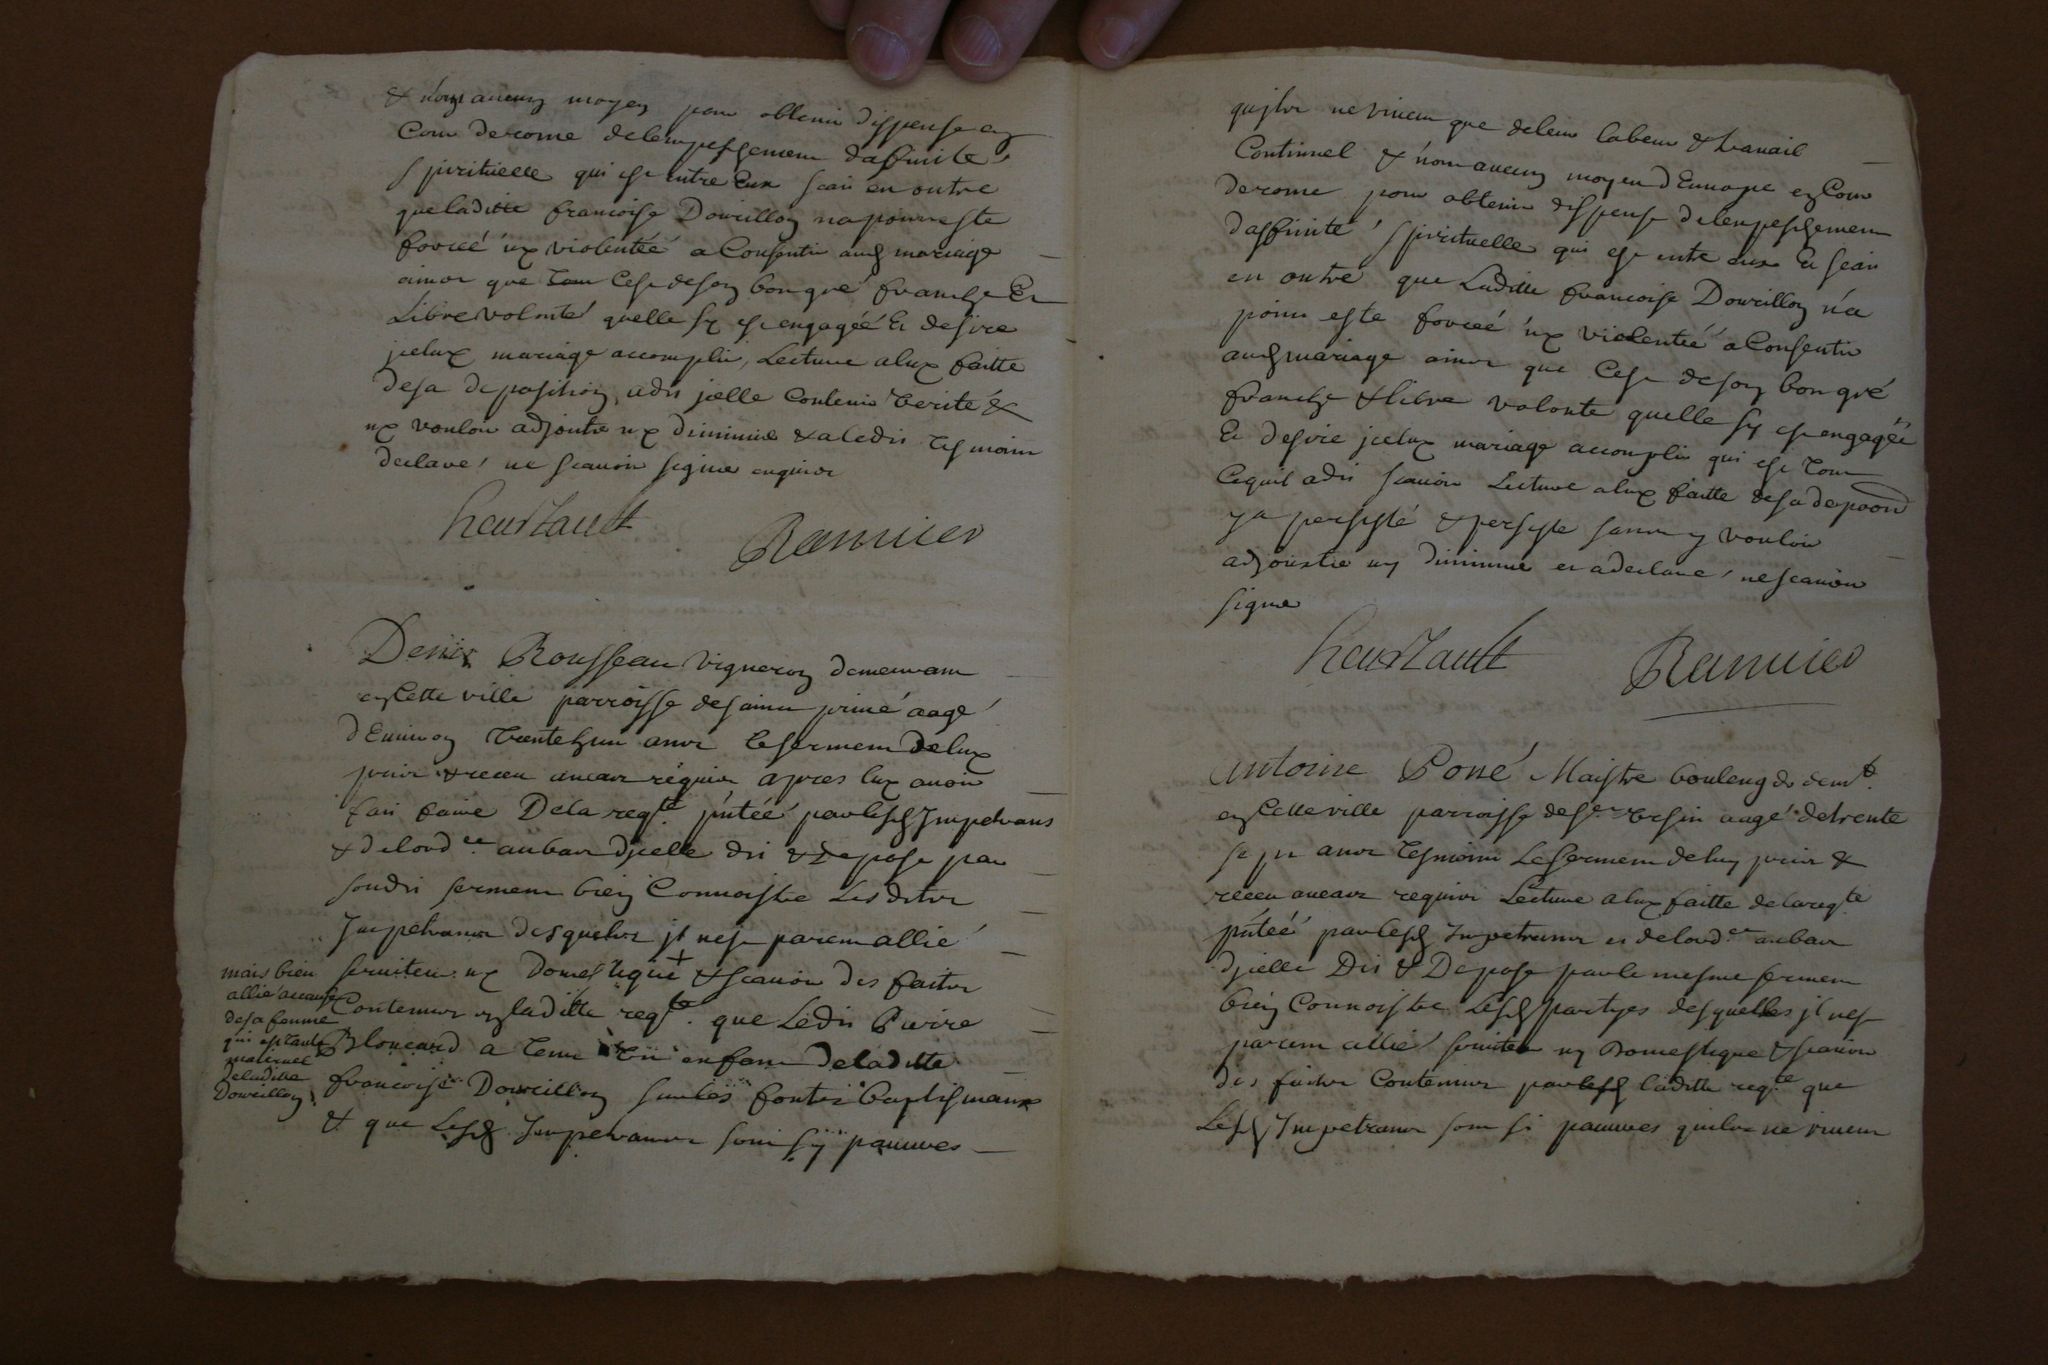 & nont aucun moyen pour obtenir dispense en
Cour de rome de lempeschement daffinité
spirituelle qui est entre Eux scait en outre
que laditte francoise Dovrillon na point este
forceé ny violentée a Consentir aud mariage
ainsi que tout Cest de son bon gré franche Et
Libre volonté quelle sy est engagéé Et desire
jceluy mariage accomplir, Lecture a luy faitte
de sa deposition a dit jcelle Contenir verité &
ny vouloir adjouter ny diminuer & a ledit tesmoin
declaré ne scavoir signer enquis
heurtault Ramier
Denis Rousseau vigneron demeurant
en Cette ville parroisse de saint privé aagé
dEnviron trente hun ans le serment de luy
pris & receu au cas requis apres luy avoir
fait faire De la reqte. p̃ntéé par lesd Impetrans
& delordce au bas djcelle dit & depose par
sondit serment bien Connoistre Les dits
Impetrans desquels jl nest parent allié
serviteur ny Domestique + & scavoir des faits
mais bien
allié a cause
de sa femme
qui est tante
maternel
de laditte
Dovrillon
Contenus en laditte reqte. que Ledit Pierre
Bloncard a tenu un enfant de laditte
francoise Dovrillon sur les fonts baptismaux
& que Lesd Impetrans sont sy pauvres
quils ne vivent que de leur labeur & travail
Continuel & nont aucun moyen dEnvoyer en Cour
de rome pour obtenir dispense de lempeschement
daffinité spirituelle qui est entre eux Et scait
en outre que Laditte francoise Dovrillon na
point este forceé ny violentéé a Consentir
aud mariage ainsi que Cest de son bon gré
franche & libre volonte quelle sy est engagéé
Et desire jceluy mariage accomplir qui est tout
Ce quil a dit scavoir Lecture a luy faitte de sa depoon
y a persisté & persiste sans y vouloir
adjouster ny diminuer et a declaré ne scavoir
signer
heurtault Ramier
Antoine Poné Maistre boulenger demt.
en Cette ville parroisse de St Ursin aagé de trente
sept ans tesmoin Le serment de luy pris &
receu au cas requis Lecture a luy faitte de la reqte
p̃ntéé par lesd Impetrans et de lordce au bas
djcelle Dit & Depose par le mesme serment
bien Connoistre Lesd partyes desquelles jl nest
parent allié serviteur ny Domestique & scavoir
des faits Contenus par lesd laditte reqte que
Lesd Impetrans sont si pauvres quils ne vivent